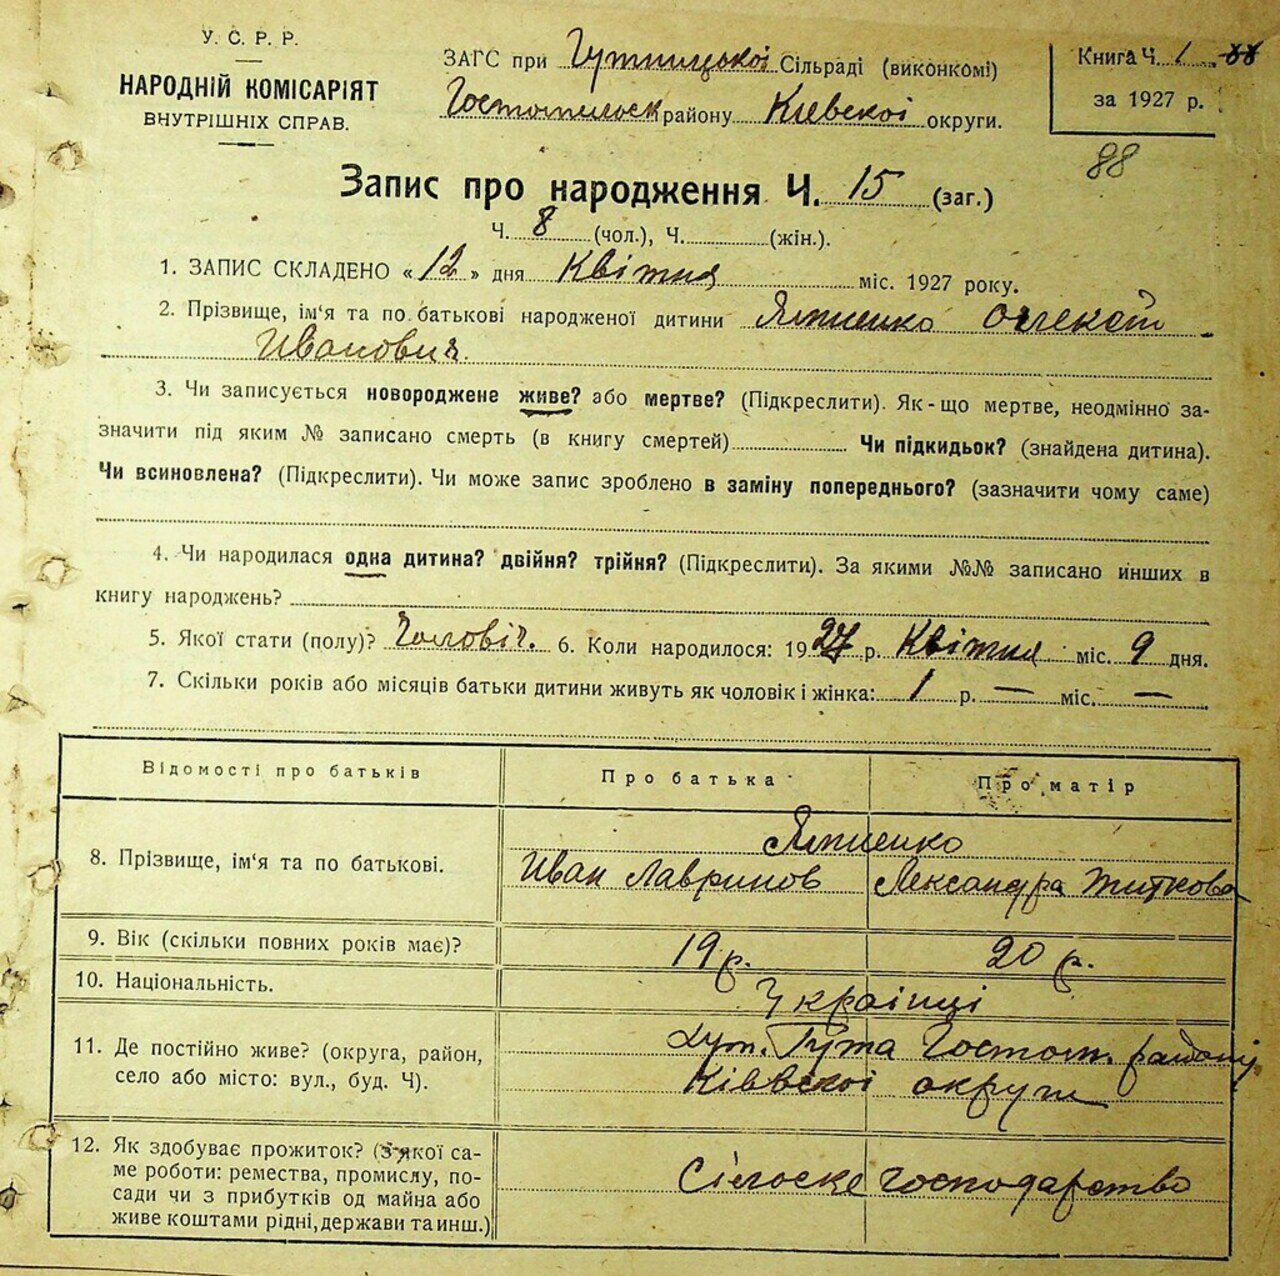 У. С. Р. Р.
НАРОДНІЙ КОМІСАРІЯТ
ВНУТРІШНІХ СПРАВ.
ЗАГС при Гутницькоі Сільраді (виконкомі)
району Киевскоі округи.
Книга Ч. 1
за 1927 р.
88
Запис про народження Ч. 15 (заг.)
Ч. 8 (чол.), Ч. (жін.).
1. ЗАПИС СКЛАДЕНО « 12 » дня Квітня міс. 1927 року.
2. Прізвище, ім'я та по батькові народженої дитини
Иванович.
3. Чи записується новороджене живе? або мертве? (Підкреслити). Як-що мертве, неодмінно за-
значити під яким № записано смерть (в книгу смертей) Чи підкидьок? (знайдена дитина).
Чи всиновлена? (Підкреслити). Чи може запис зроблено в заміну попереднього? (зазначити чому саме)
4. Чи народилася одна дитина? двійня? трійня? (Підкреслити). За якими №№ записано инших в
книгу народжень?
5. Якої стати (полу)? Чоловіч. 6. Коли народилося: 1927 р. Квітня міс. 9 дня.
7. Скільки років або місяців батьки дитини живуть як чоловік і жінка: 1 р. — міс. —
Відомості про батьків Про батька Про матір
8. Прізвище, ім'я та по батькові.
Иван Лавринов Александра Титкова
9. Вік (скільки повних років має)? 19 р. 20 р.
10. Національність. Українці
11. Де постійно живе? (округа, район,
село або місто: вул., буд. Ч).
хут. Гута Гостом. району
Київскоі округи
12. Як здобуває прожиток? (з якої са-
ме роботи: ремества, промислу, по-
сади чи з прибутків од майна або
живе коштами рідні, держави та инш.)
Сільське господарство